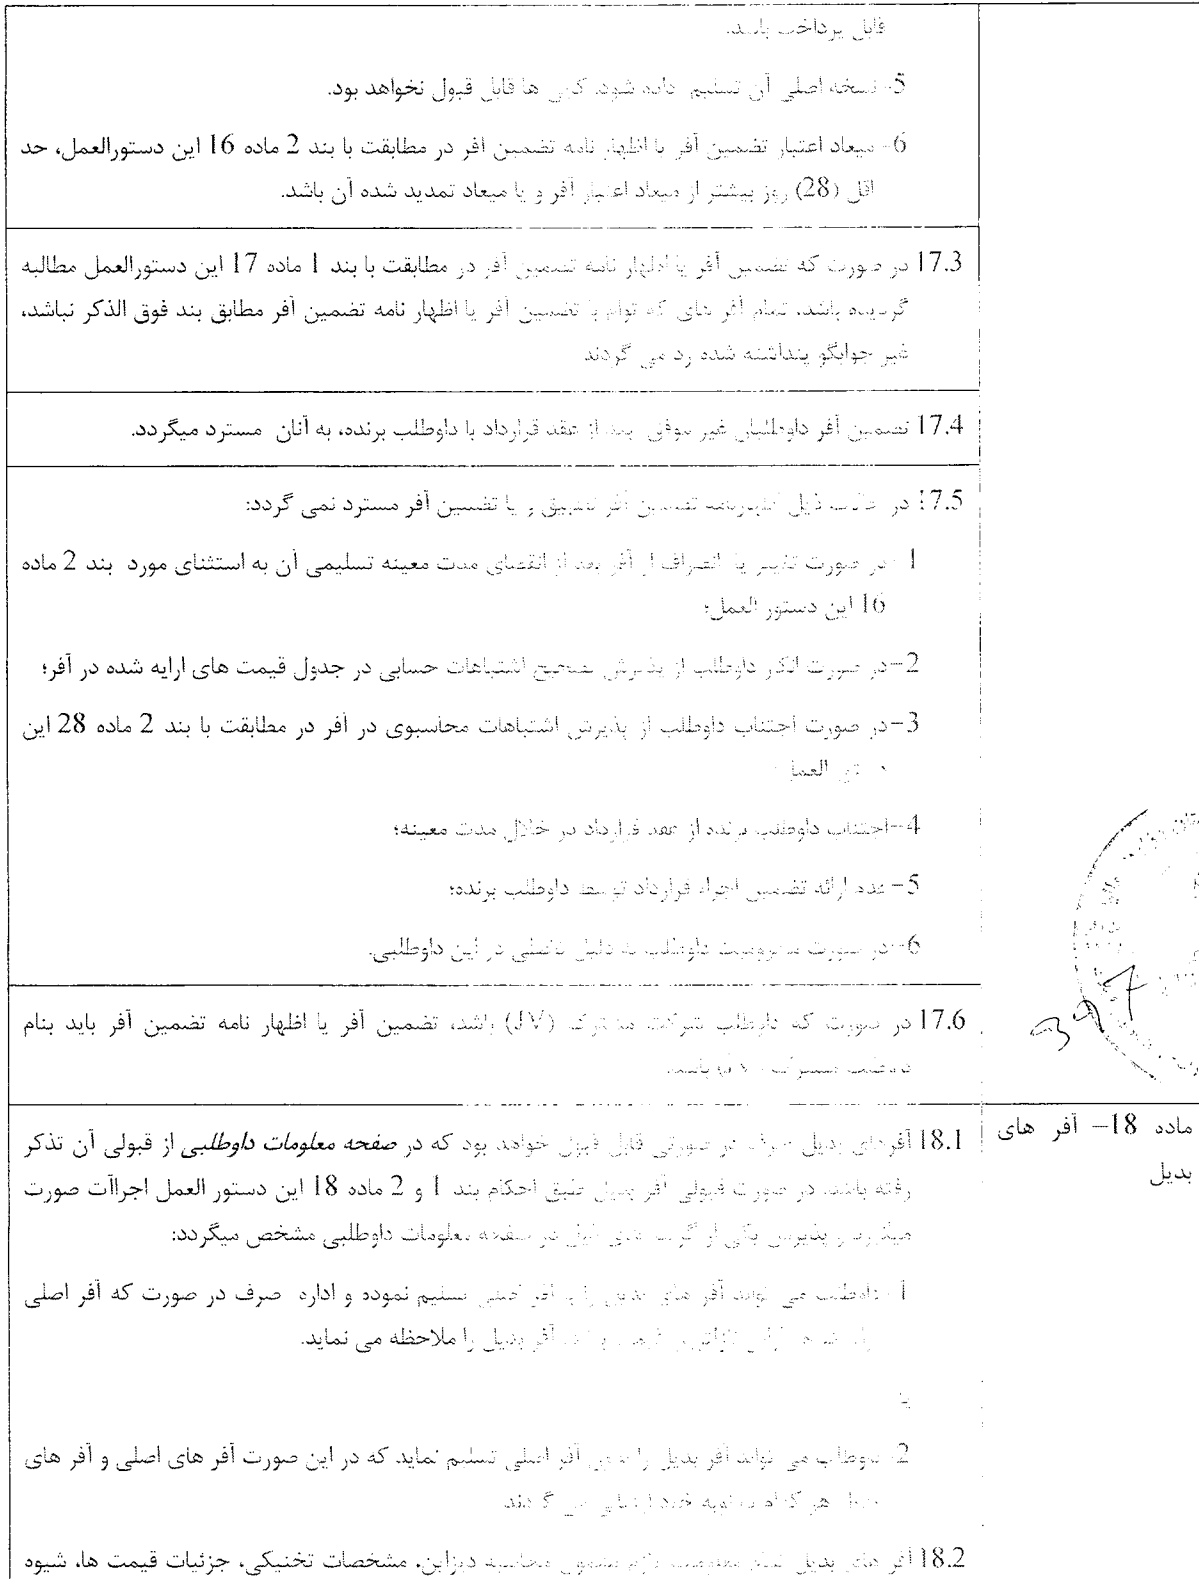 قابل پرداخت باشد.
5- نسخه اصلی آن تسلیم داده شود. کپی ها قابل قبول نخواهد بود.
6- میعاد اعتبار تضمین آفر یا اظهار نامه تضمین آفر در مطابقت با بند 2 ماده 16 این دستورالعمل، حد
اقل (28) روز بیشتر از میعاد اعتبار آفر و یا میعاد تمدید شده آن باشد.
17.3 در صورت که تضمین آفر یا اظهار نامه تضمین آفر در مطابقت با بند 1 ماده 17 این دستورالعمل مطالبه
گردیده باشد، تمام آفر های که توام با تضمین آفر یا اظهار نامه تضمین آفر مطابق بند فوق الذکر نباشد،
غیر جوابگو پنداشته شده رد می گردند
17.4 تضمین آفر داوطلبان غیر موفق بعد از عقد قرارداد با داوطلب برنده، به آنان مسترد میگردد.
17.5 در حالات ذیل اظهارنامه تضمین آفر تطبیق و یا تضمین آفر مسترد نمی گردد:
1- در صورت تغییر یا انصراف از آفر بعد از انقضای مدت معینه تسلیمی آن به استثنای مورد بند 2 ماده
16 این دستور العمل؛
2- در صورت انکار داوطلب از پذیرش تصحیح اشتباهات حسابی در جدول قیمت های ارایه شده در آفر؛
3- در صورت اجتناب داوطلب از پذیرش اشتباهات محاسبوی در آفر در مطابقت با بند 2 ماده 28 این
العمل
4- اجتناب داوطلب برنده از عقد قرارداد در خلال مدت معینه؛
5- عدم ارائه تضمین اجراء قرارداد توسط داوطلب برنده؛
6- در صورت محرومیت داوطلب به دلیل تخلفی در این داوطلبی.
17.6 در صورت که داوطلب شرکت مشترک (JV) باشد، تضمین آفر یا اظهار نامه تضمین آفر باید بنام
باشد.
ماده 18– آفر های
بدیل
18.1 آفرهای بدیل صرف در صورتی قابل قبول خواهد بود که در صفحه معلومات داوطلبی از قبولی آن تذکر
رفته باشد. در صورت قبولی آفر بدیل طبق احکام بند 1 و 2 ماده 18 این دستور العمل اجراآت صورت
میگیرد و پذیرش یکی از گزینه های ذیل در صفحه معلومات داوطلبی مشخص میگردد:
1- داوطلب می تواند آفر های بدیل را با آفر اصلی تسلیم نموده و اداره صرف در صورت که آفر اصلی
قیمت آفر بدیل را ملاحظه می نماید.
یا
2- داوطلب می تواند آفر بدیل را بدون آفر اصلی تسلیم نماید که در این صورت آفر های اصلی و آفر های
بدیل هر کدام به نوبه خود ارزیابی می گردند
18.2 آفر های بدیل تمام معلومات لازم بشمول محاسبه دیزاین، مشخصات تخنیکی، جزئیات قیمت ها، شیوه